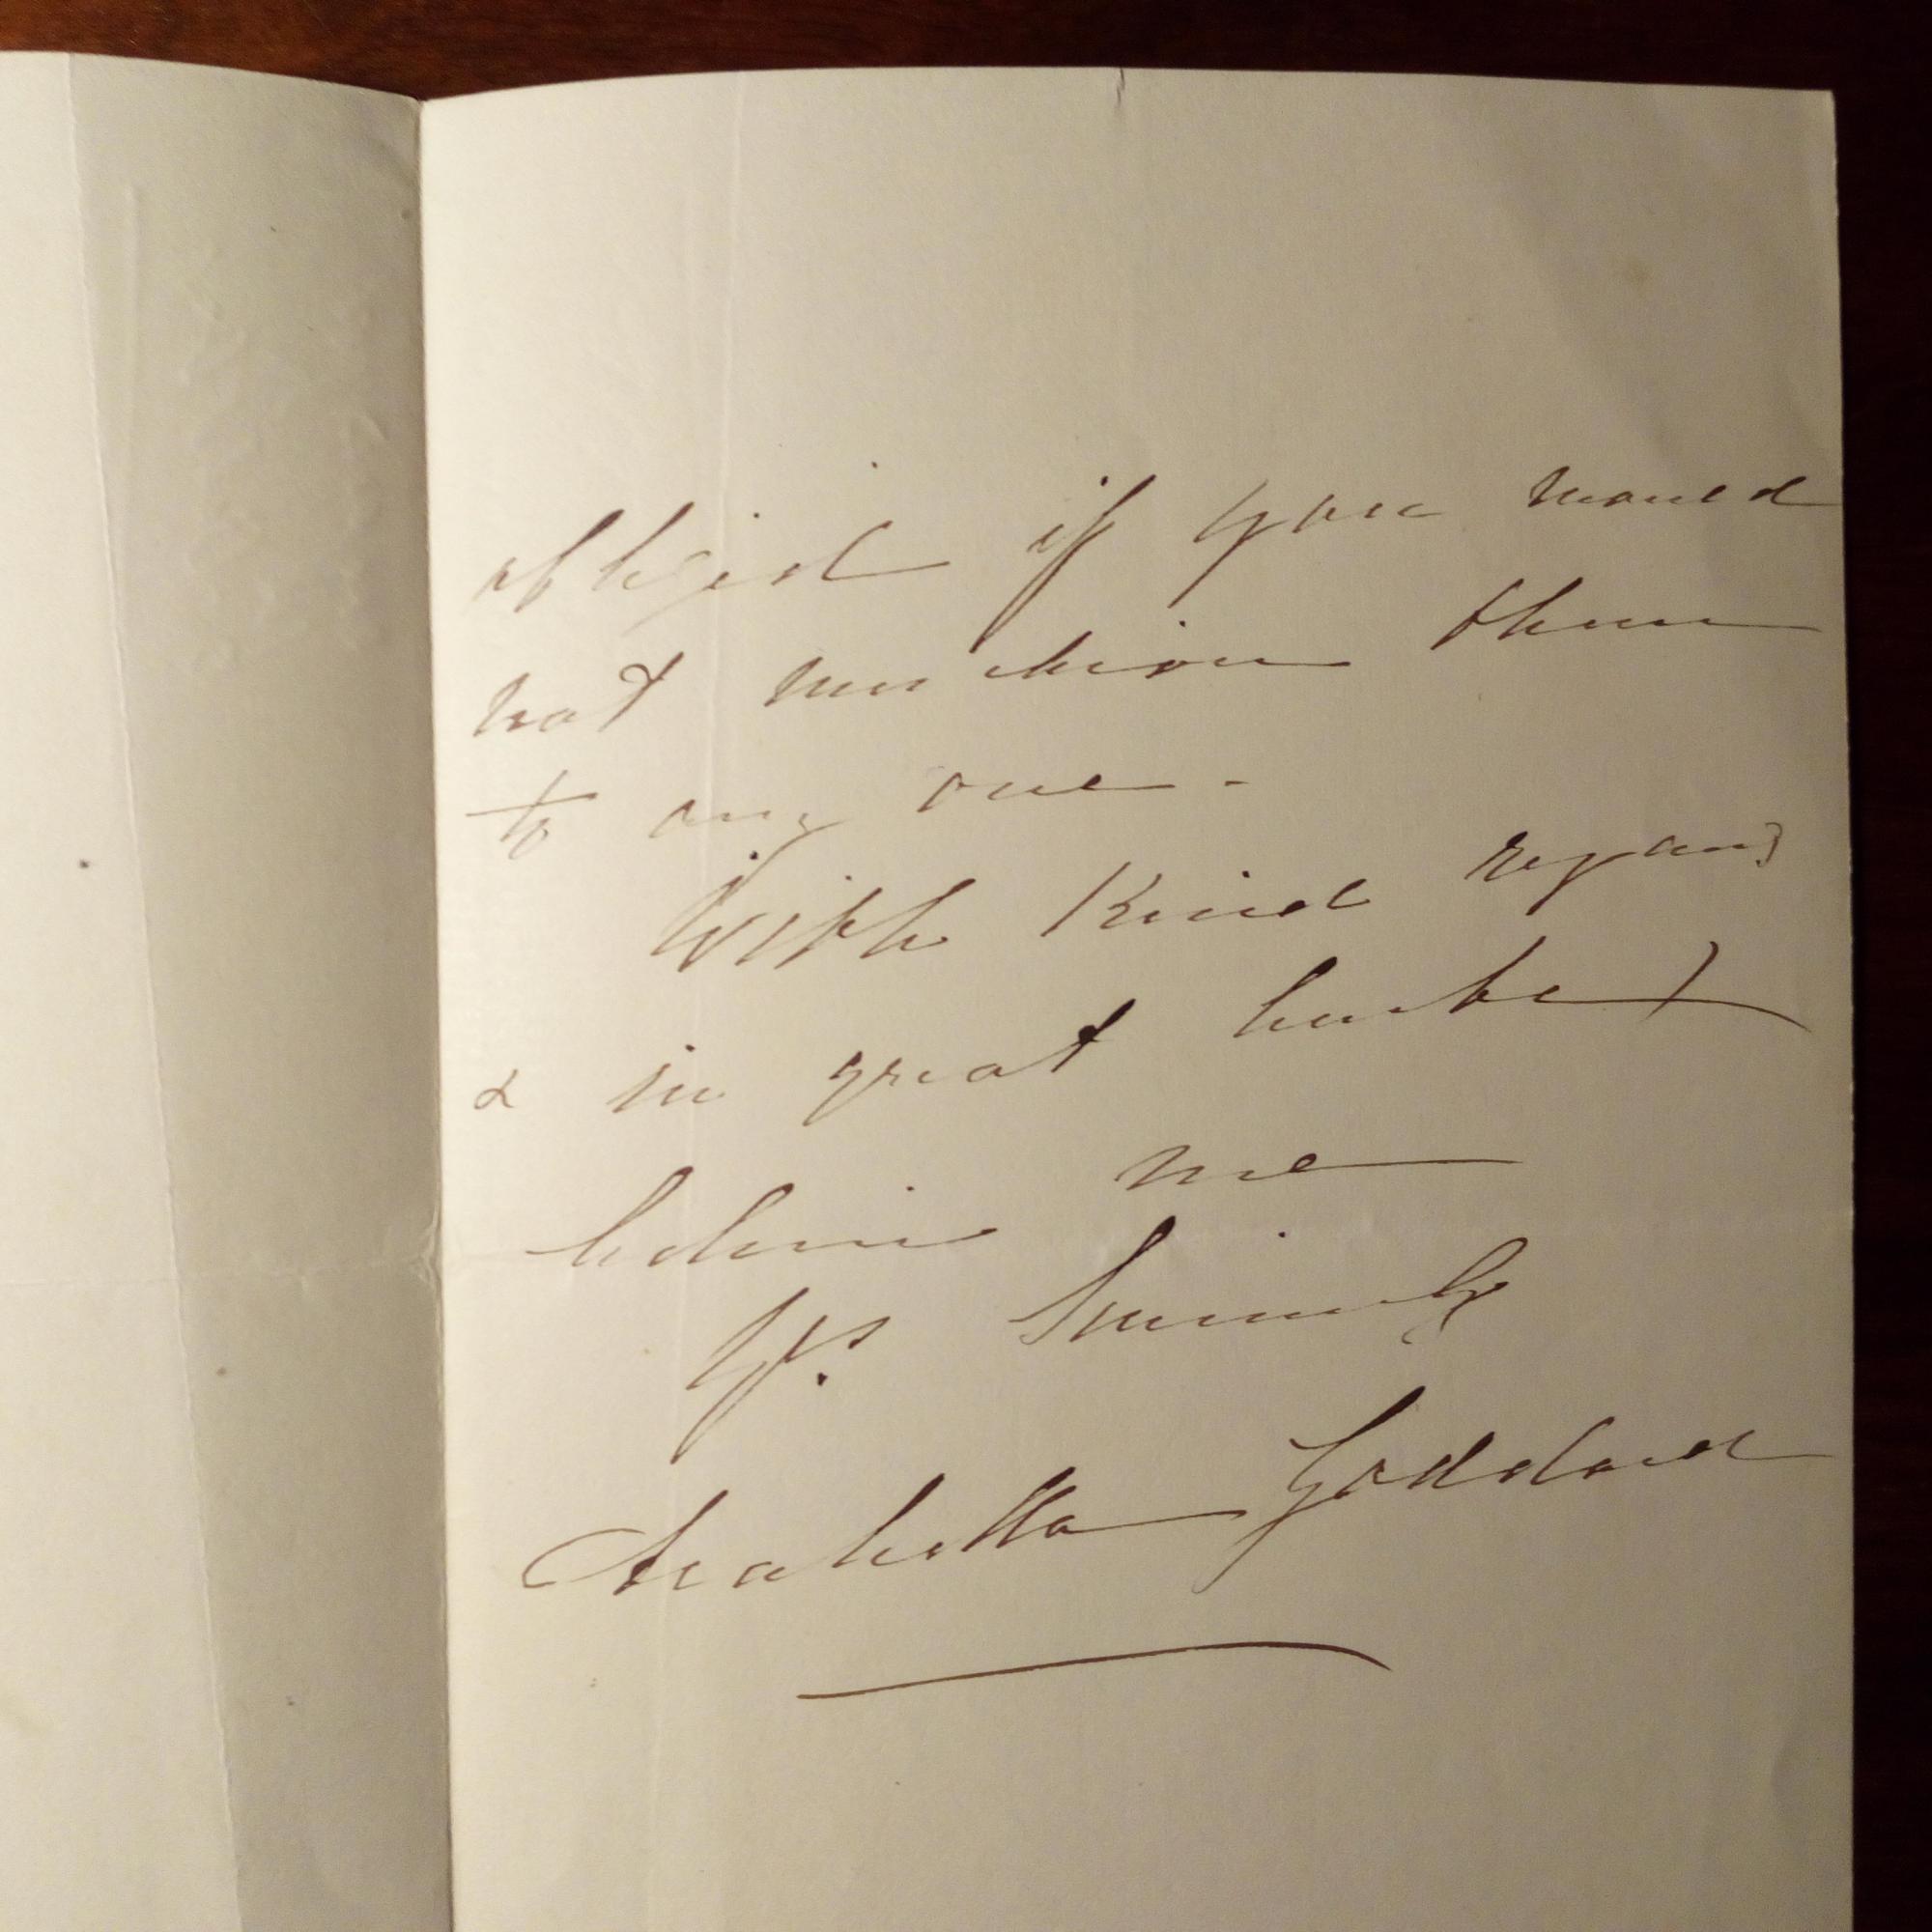 obliged if you would
not mention them
to any one -
With kind regards
& in great haste
believe me
Yrs. Sincerely
Arabella Goddard